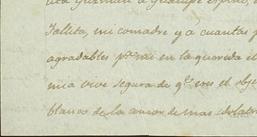 Guzman a Guadalupe Espino,
Tallita, mi comadre y a cuantas p
agradables p.ª mi en la querida el
mia vive segura de q.e eres el obje
blanco de la amor de mas idolatr